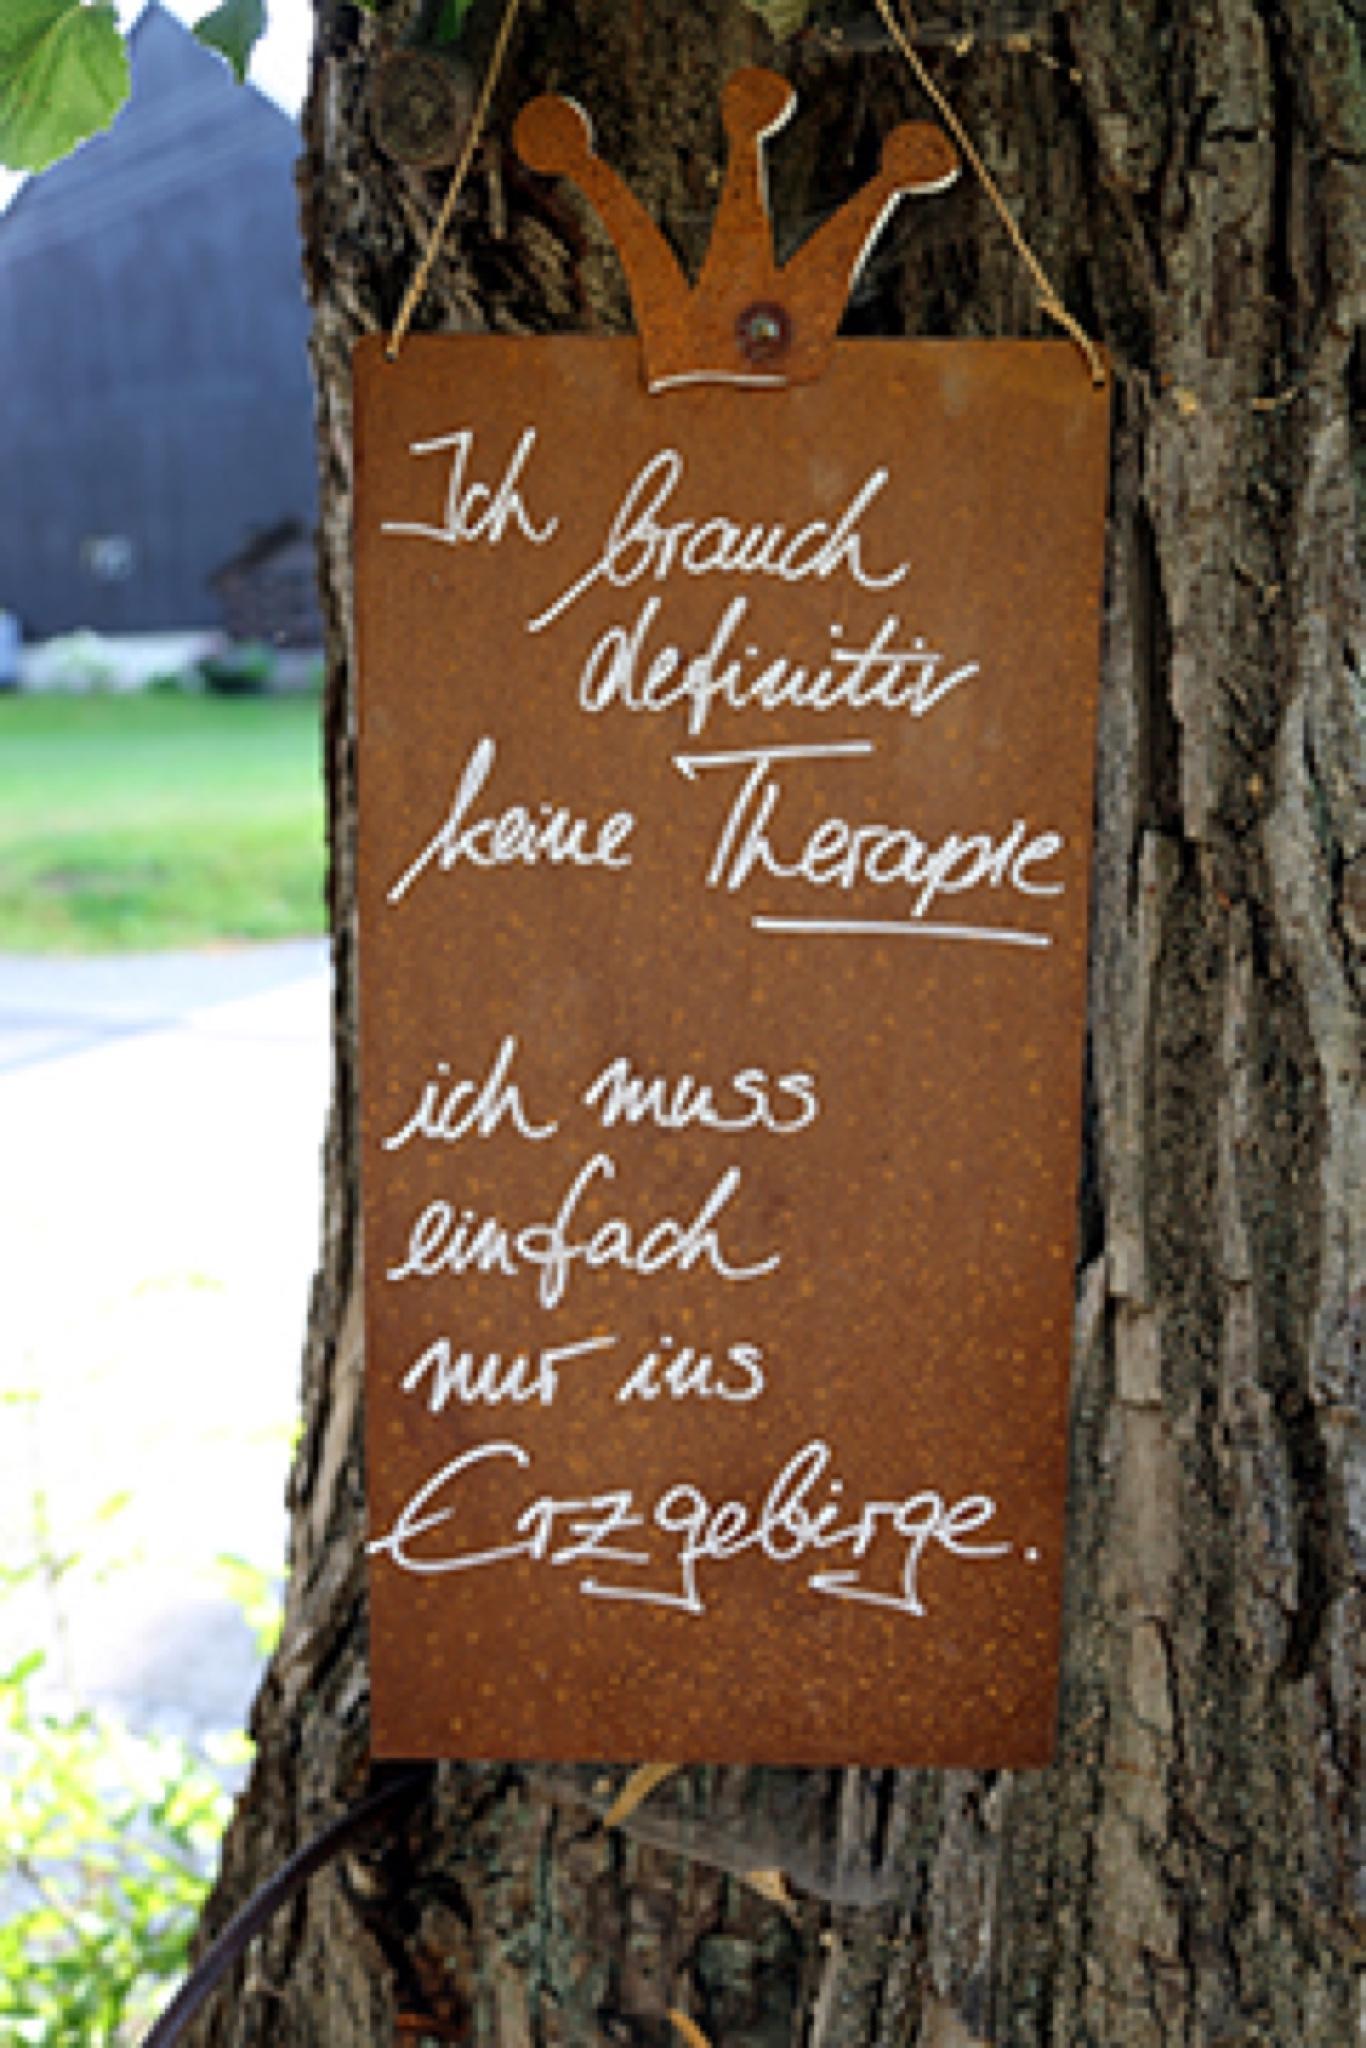 Ich brauch
definitiv
keine Therapie
ich muss
einfach
nur ins
Erzgebirge.